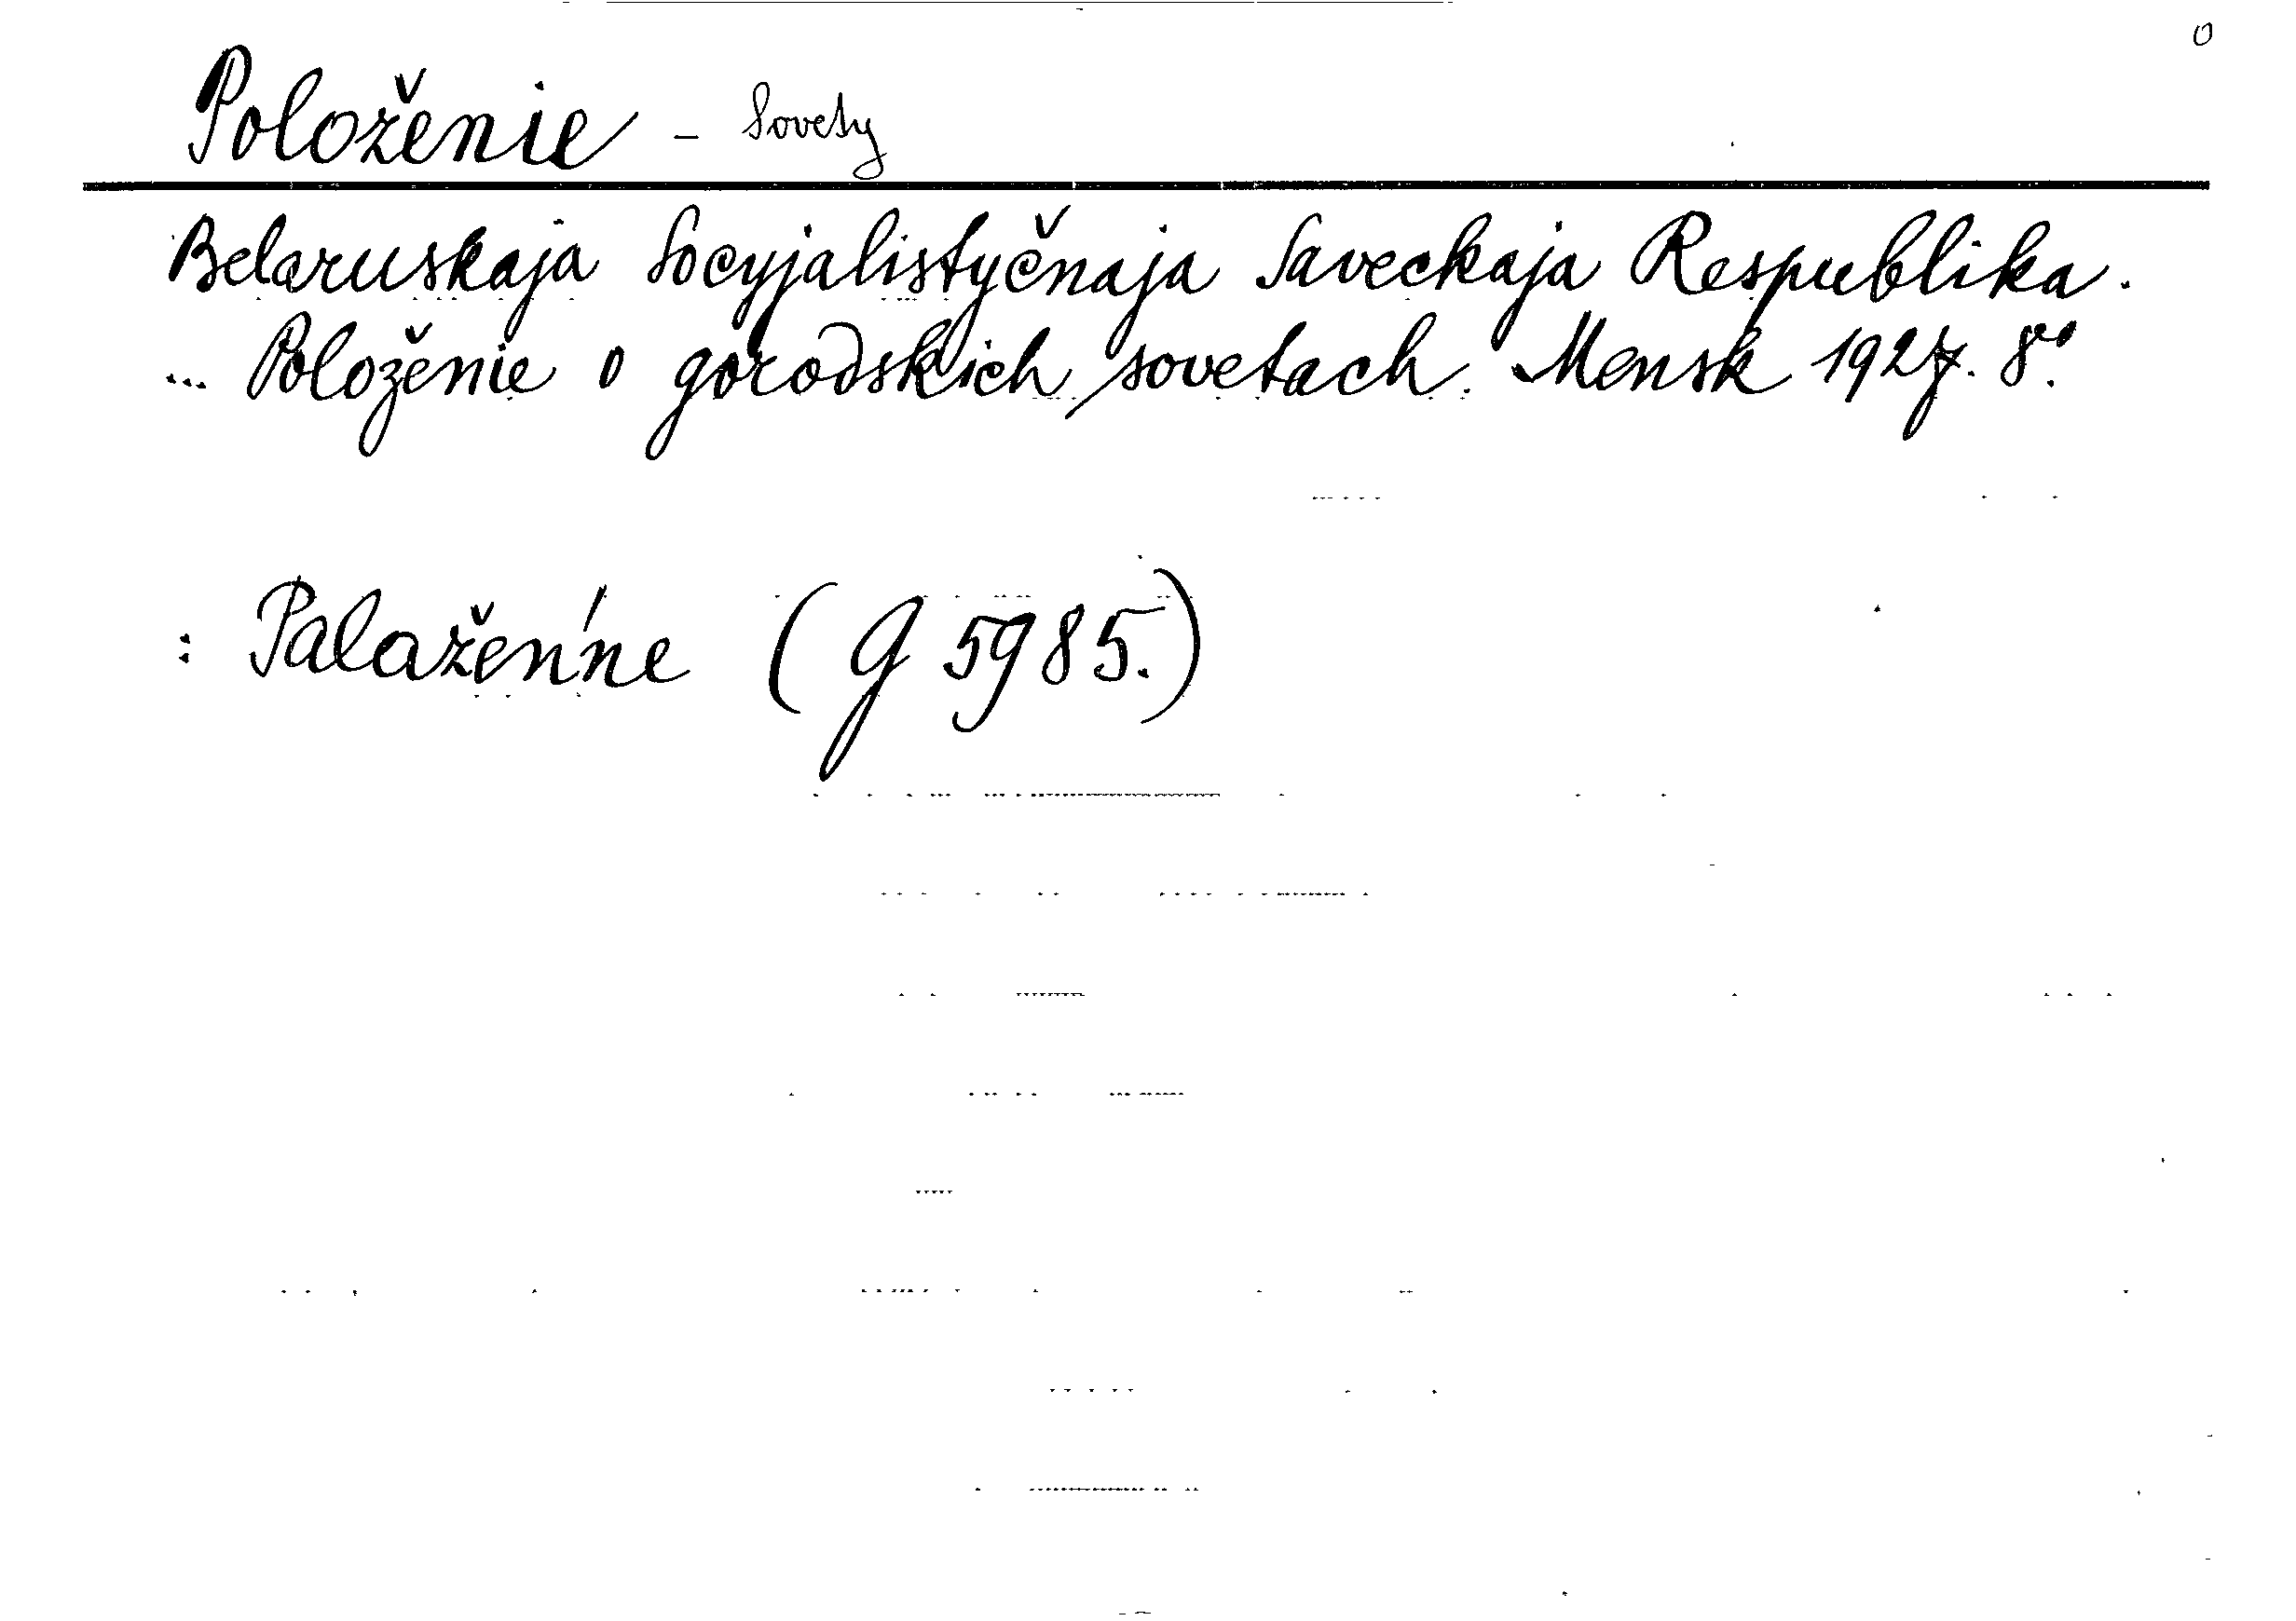 0
Položenie - Sovety
Belaruskaja Socyjalistyčnaja Saveckaja Respublika.
... Položenie o gorodskich sovetach. Mensk 1927. 8º.
: Palažeńne (g 5985.)